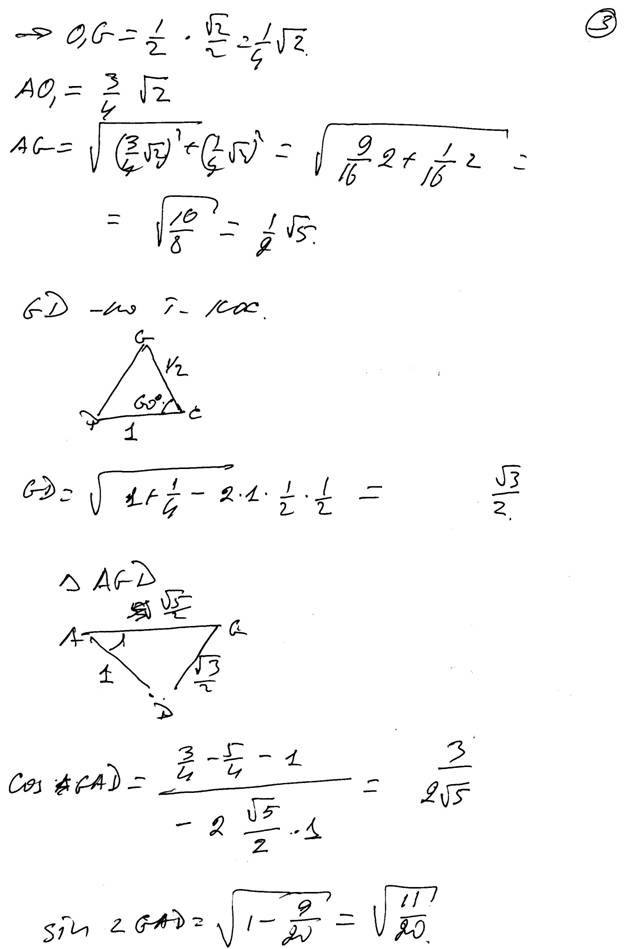 ③
⇒ O₁G = 1/2 · √2/2 = 1/4 √2.
AO₁ = 3/4 √2
AG = √((3/4 √2)² + (1/4 √2)²) = √(9/16 2 + 1/16 2) =
= √(10/8) = 1/2 √5.
GD – по т – кос.
G
1/2
60°
D C
1
GD = √(1 + 1/4 – 2·1·1/2·1/2) = √3/2.
Δ AGD
√5/2
A G
1 √3/2
D
cos GAD = (3/4 – 5/4 – 1)/(– 2 √5/2 · 1) = 3/(2√5)
sin ∠GAD = √(1 – 9/20) = √(11/20).